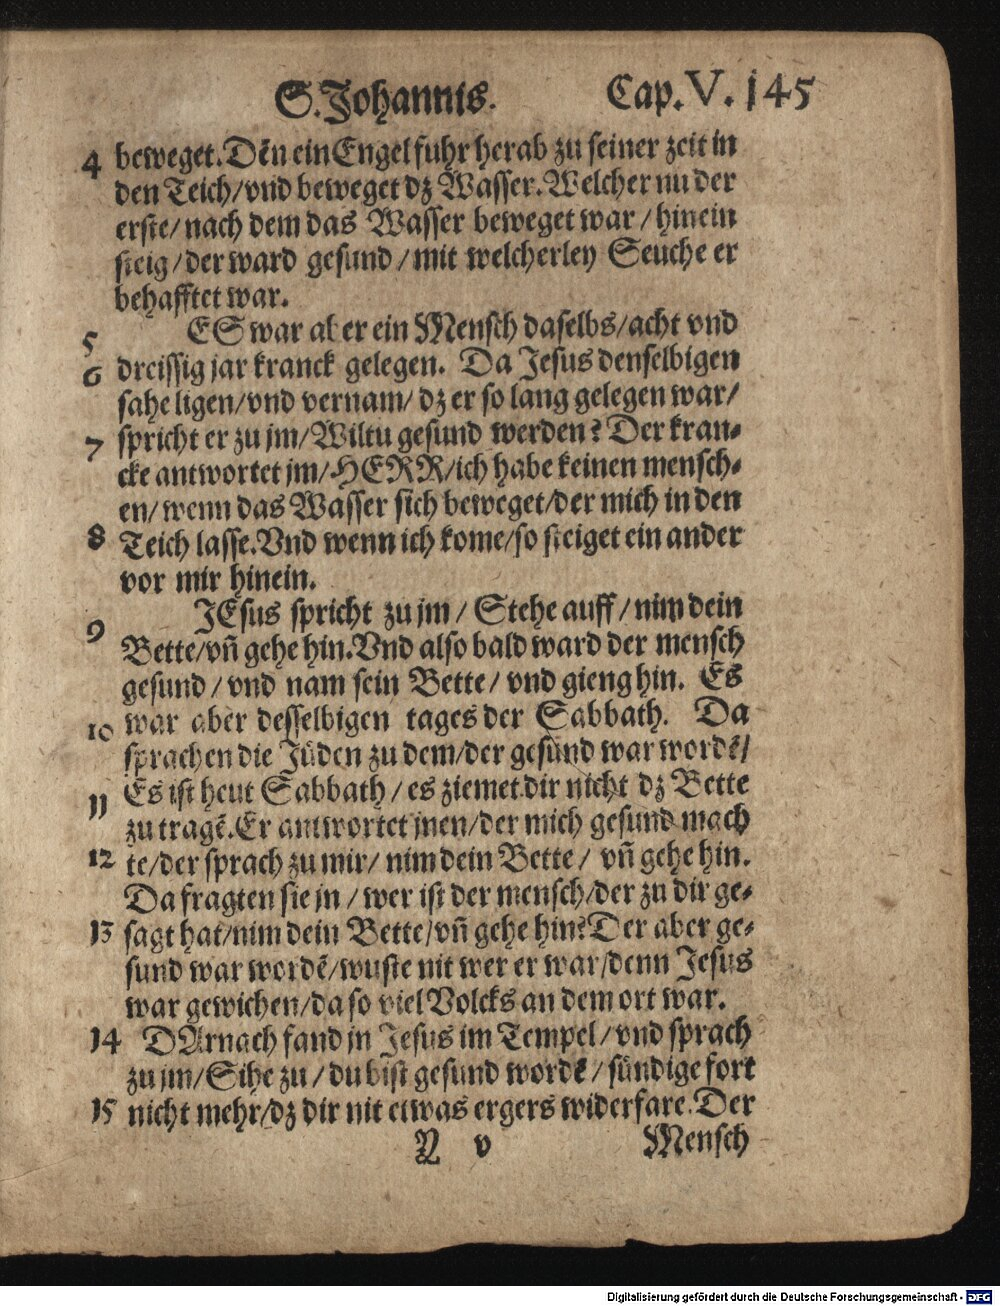 S. Johannis. Cap. V. 145
4 beweget. Dẽn ein Engel fuhr herab zu seiner zeit in
den Teich/ vnd beweget dz Wasser. Welcher nu der
erste/ nach dem das Wasser beweget war/ hinein
steig/ der ward gesund/ mit welcherley Seuche er
behafftet war.
5 ES war aber ein Mensch daselbs/ acht vnd
6 dreissig jar kranck gelegen. Da Jesus denselbigen
sahe ligen/ vnd vernam/ dz er so lang gelegen war/
7 spricht er zu jm/ Wiltu gesund werden? Der kran-
cke antwortet jm/ HERR/ ich habe keinen mensch-
en/ wenn das Wasser sich beweget/ der mich in den
8 Teich lasse. Vnd wenn ich kome/ so steiget ein ander
vor mir hinein.
9 JEsus spricht zu jm/ Stehe auff/ nim dein
Bette/ vñ gehe hin. Vnd also bald ward der mensch
gesund/ vnd nam sein Bette/ vnd gieng hin. Es
10 war aber desselbigen tages der Sabbath. Da
sprachen die Jüden zu dem/ der gesund war wordẽ/
11 Es ist heut Sabbath/ es ziemet dir nicht dz Bette
zu tragẽ. Er antwortet jnen/ der mich gesund mach
12 te/ der sprach zu mir/ nim dein Bette/ vñ gehe hin.
Da fragten sie jn/ wer ist der mensch/ der zu dir ge-
13 sagt hat/ nim dein Bette/ vñ gehe hin? Der aber ge-
sund war wordẽ/ wuste nit wer er war/ denn Jesus
war gewichen/ da so viel Volcks an dem ort war.
14 DArnach fand jn Jesus im Tempel/ vnd sprach
zu jm/ Sihe zu/ du bist gesund wordẽ/ sündige fort
15 nicht mehr/ dz dir nit etwas ergers widerfare. Der
N v Mensch
Digitalisierung gefördert durch die Deutsche Forschungsgemeinschaft - DFG